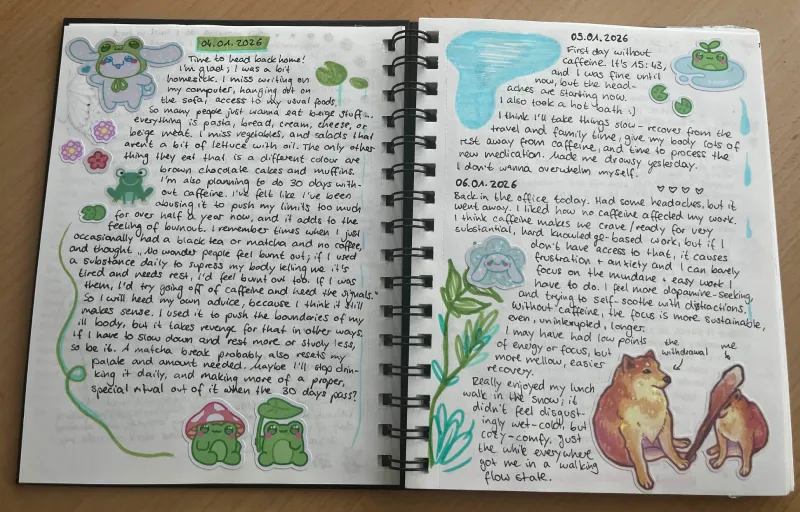 04.01.2026
Time to head back home!
I'm glad; I was a bit
homesick. I miss writing on
my computer, hanging out on
the sofa, access to my usual foods,
So many people just wanna eat beige stuff...
everything is pasta, bread, cream, cheese, or
beige meat. I miss vegetables, and salads that
aren't a bit of lettuce with oil. The only other
thing they eat that is a different colour are
brown chocolate cakes and muffins.
I'm also planning to do 30 days with-
out caffeine. I've felt like I've been
abusing it to push my limits too much
for over half a year now, and it adds to the
feeling of burnout. I remember times when I just
occasionally had a black tea or matcha and no coffee,
and thought „No wonder people feel burnt out; if I used
a substance daily to supress my body telling me it's
tired and needs rest, I'd feel burnt out too. If I was
them, I'd try going off of caffeine and heed the signals."
So I will heed my own advice, because I think it still
makes sense. I used it to push the boundaries of my
ill body, but it takes revenge for that in other ways.
If I have to slow down and rest more or study less,
so be it. A matcha break probably also resets my
palate and amount needed. Maybe I'll stop drin-
king it daily, and making more of a proper,
special ritual out of it when the 30 days pass?
05.01.2026
First day without
caffeine. It's 15:43,
and I was fine until
now, but the head-
aches are starting now.
I also took a hot bath :)
I think I'll take things slow - recover from the
travel and family time, give my body lots of
rest away from caffeine, and time to process the
new medication. Made me drowsy yesterday.
I don't wanna overwhelm myself.
06.01.2026
Back in the office today. Had some headaches, but it
went away. I liked how no caffeine affected my work.
I think caffeine makes me crave/ready for very
substantial, hard knowledge-based work, but if I
don't have access to that, it causes
frustration + anxiety and I can barely
focus on the mundane + easy work I
have to do. I feel more dopamine-seeking,
and trying to self-soothe with distractions.
Without caffeine, the focus is more sustainable,
even, uninterrupted, longer.
I may have had low points
of energy or focus, but
more mellow, easier
recovery.
the withdrawal
me
Really enjoyed my lunch
walk in the snow; it
didn't feel disgust-
ingly wet-cold, but
cozy-comfy. Just
the white everywhere
got me in a walking
flow state.